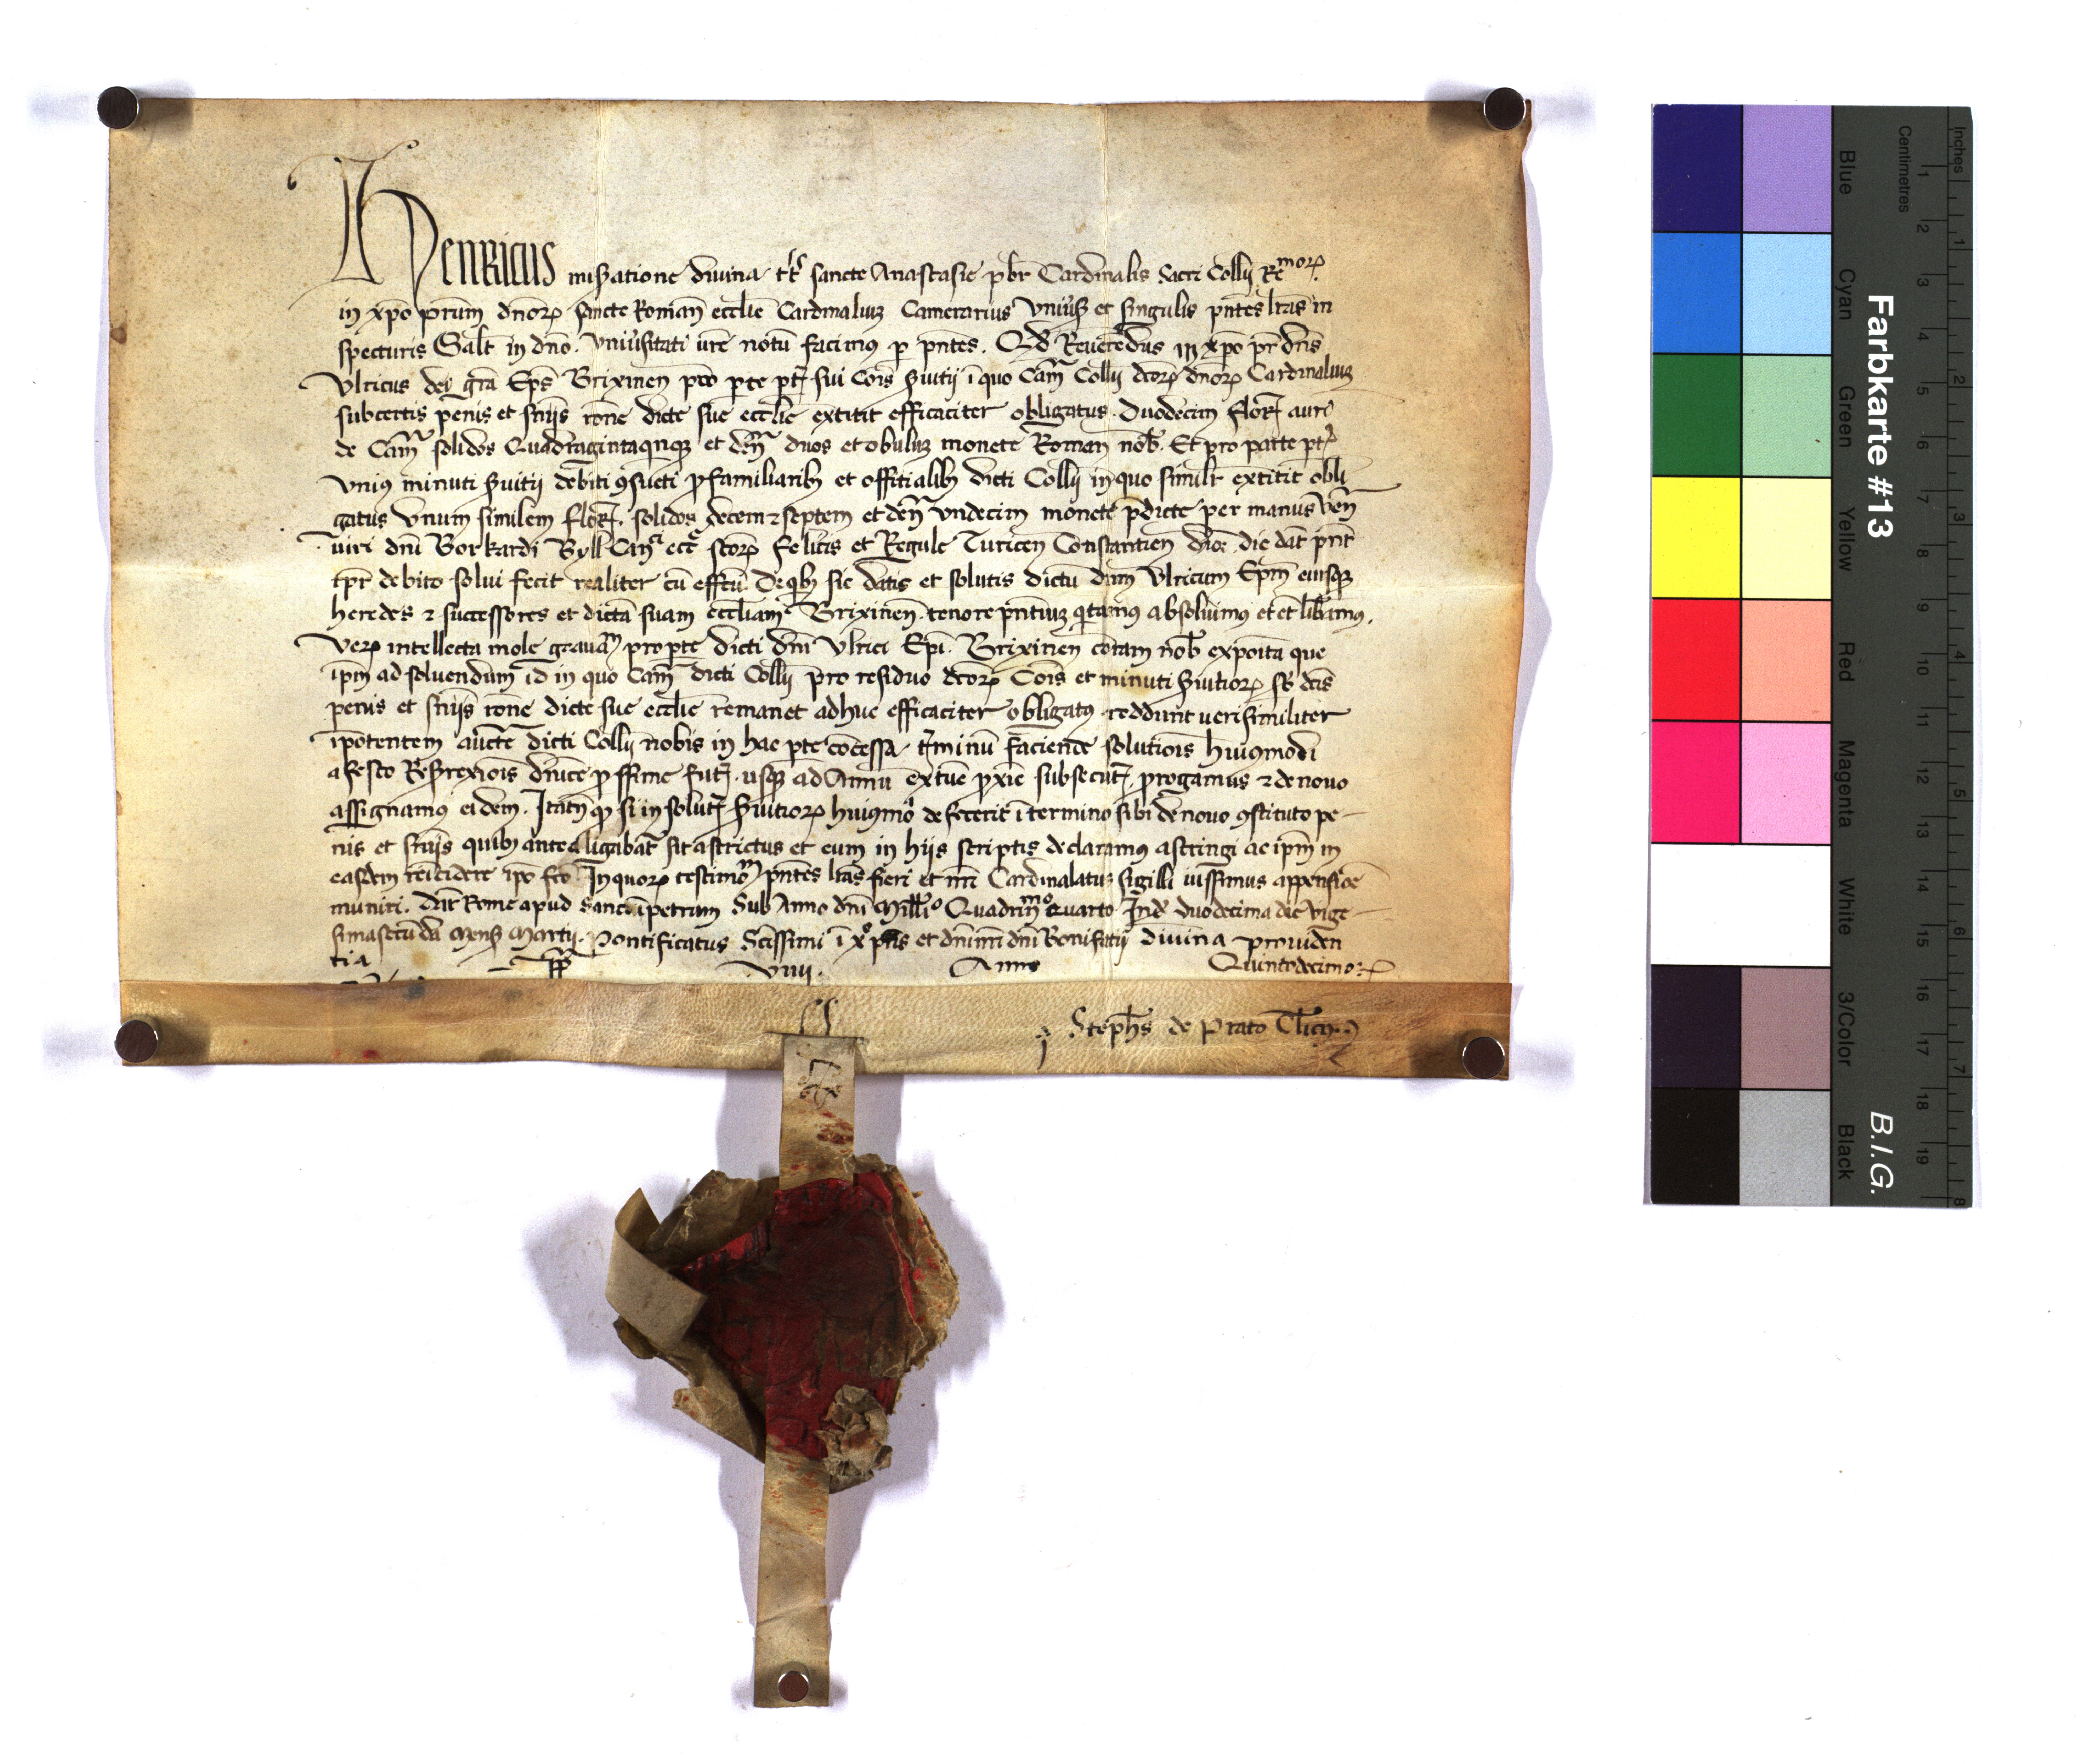 Henricus mis̃atione diuina tt̃s sancte Anastasie pb̃r Cardinalis Sacri Coll̃ij Re^morꝝ
in xp̃o pr̃um dñorꝝ sancte Romañ eccl̃ie Cardinaliuꝫ Camerarius Vniũs̃ et singulis pñtes lr̃as in
specturis Salt̃ in dño. Vniũsitati ur̃e notũ facimus ꝑ pñtes. Qđ Reuerẽdus in xp̃o pr̃ dñs
Vlricus dei gr̃a Ep̃s Brixineñ pro ꝑte sui Cõis s̃uitij ĩ quo Cam̃ Coll̃ij dc̃orꝝ dñorꝝ Cardinaliuꝫ
subcertis penis et sñijs rõne dicte sue eccl̃ie extitit efficaciter obligatus. Duodecim flor̃ auri
de Cam̃ solidos Quadragintaqnqꝫ et deñ duos et obuluꝫ monete Romañ nob̃. Et pro parte
Vniꝰ minuti s̃uitij debiti ꝯsueti ꝓ familiaribꝫ et offitialibꝫ dicti Coll̃ij in quo simul̃r extitit obli
gatus Vnum similem flor̃. solidos decem ⁊ septem et deñ Vndecim monete p̃dicte per manus veñ
uiri dñi Borkardi eccl̃ sc̃orꝝ felicis et Regule Turiceñ Constantieñ dioc̃. die dat̃ pñt
tp̃r debito solui fecit realiter cũ effcũ. De qbꝫ sic datis et solutis dictũ dñm Vlricum Ep̃m eiusqꝫ
heredes ⁊ successores et dictã suam eccl̃iam Brixineñ. tenore pñtiuꝫ qtamꝰ absoluimus et lib̃amus.
Verꝝ intellecta mole grauam̃ pro ꝑte dicti dñi Vlrici Ep̃i. Brixineñ coram nob̃ exposita que
ip̃m ad soluendum id in quo Cam̃ dicti Coll̃ij pro residuo dc̃orꝝ Cõis et minuti s̃uitiorꝝ sb̃ dc̃is
penis et sñijs rõne dicte sue eccl̃ie remanet adhuc efficaciter obligatꝰ reddunt uerisimiliter
ip̃otentem auct̃e dicti Coll̃ij nobis in hac ꝑte cõcessa. t̃minũ faciende solutiõis huiꝰmodi
a festo Res̃rexiõis dñice ꝓssime fut̃. usqꝫ ad Annũ extũc ꝓxiẽ subsecut̃. ꝓrogamus ⁊ de novo
assignamus eidem. Itatñ qꝫ si in solut̃ s̃uitiorꝝ huiꝰmõi defecerit ĩ termino sibi denouo ꝯstituto pe-
nis et sñijs quibꝫ antea ligabat̃ sit astrictus et eum in hijs scriptis declaramus astringi ac ip̃m in
easdem reincidere ip̃o fc̃o. In quorꝝ testimõ pñtes lr̃as fieri et nr̃i Cardinalatus sigilli iussimus appensiõe
muniri. Dat̃ Rome apud Sanctũpetrum Sub Anno dñi Mill̃io Quadriñ^mo quarto Ind̃ duodecima die vige-
simasecũda mens̃ Martij. Pontificatus Sc̃issimi ĩ xp̃o pr̃is et dñi nr̃i dñi Bonifatij diuina prouiden
tia pp̃ Viiij. Anno Quintodecimo
Steph̃s de Prato Cl̃icꝰ